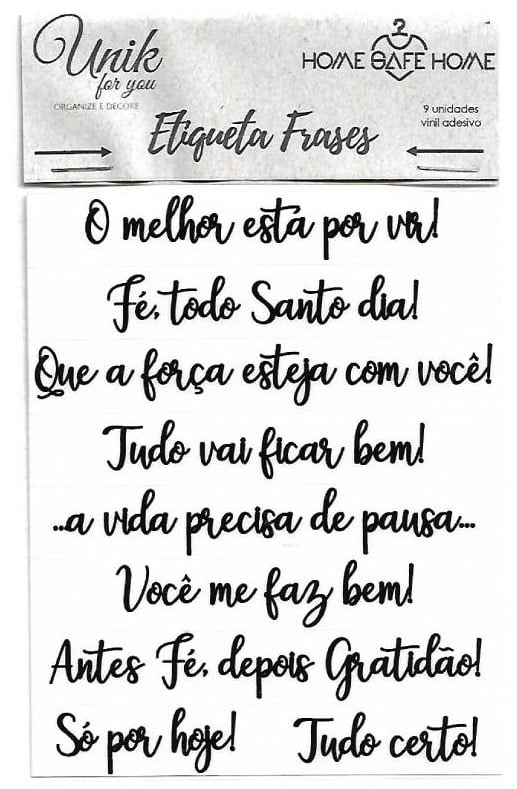 Unik
for you
ORGANIZE E DECORE
HOME SAFE HOME
9 unidades
vinil adesivo
Etiqueta Frases
O melhor está por vir!
Fé, todo Santo dia!
Que a força esteja com você!
Tudo vai ficar bem!
...a vida precisa de pausa...
Você me faz bem!
Antes Fé, depois Gratidão!
Só por hoje! Tudo certo!